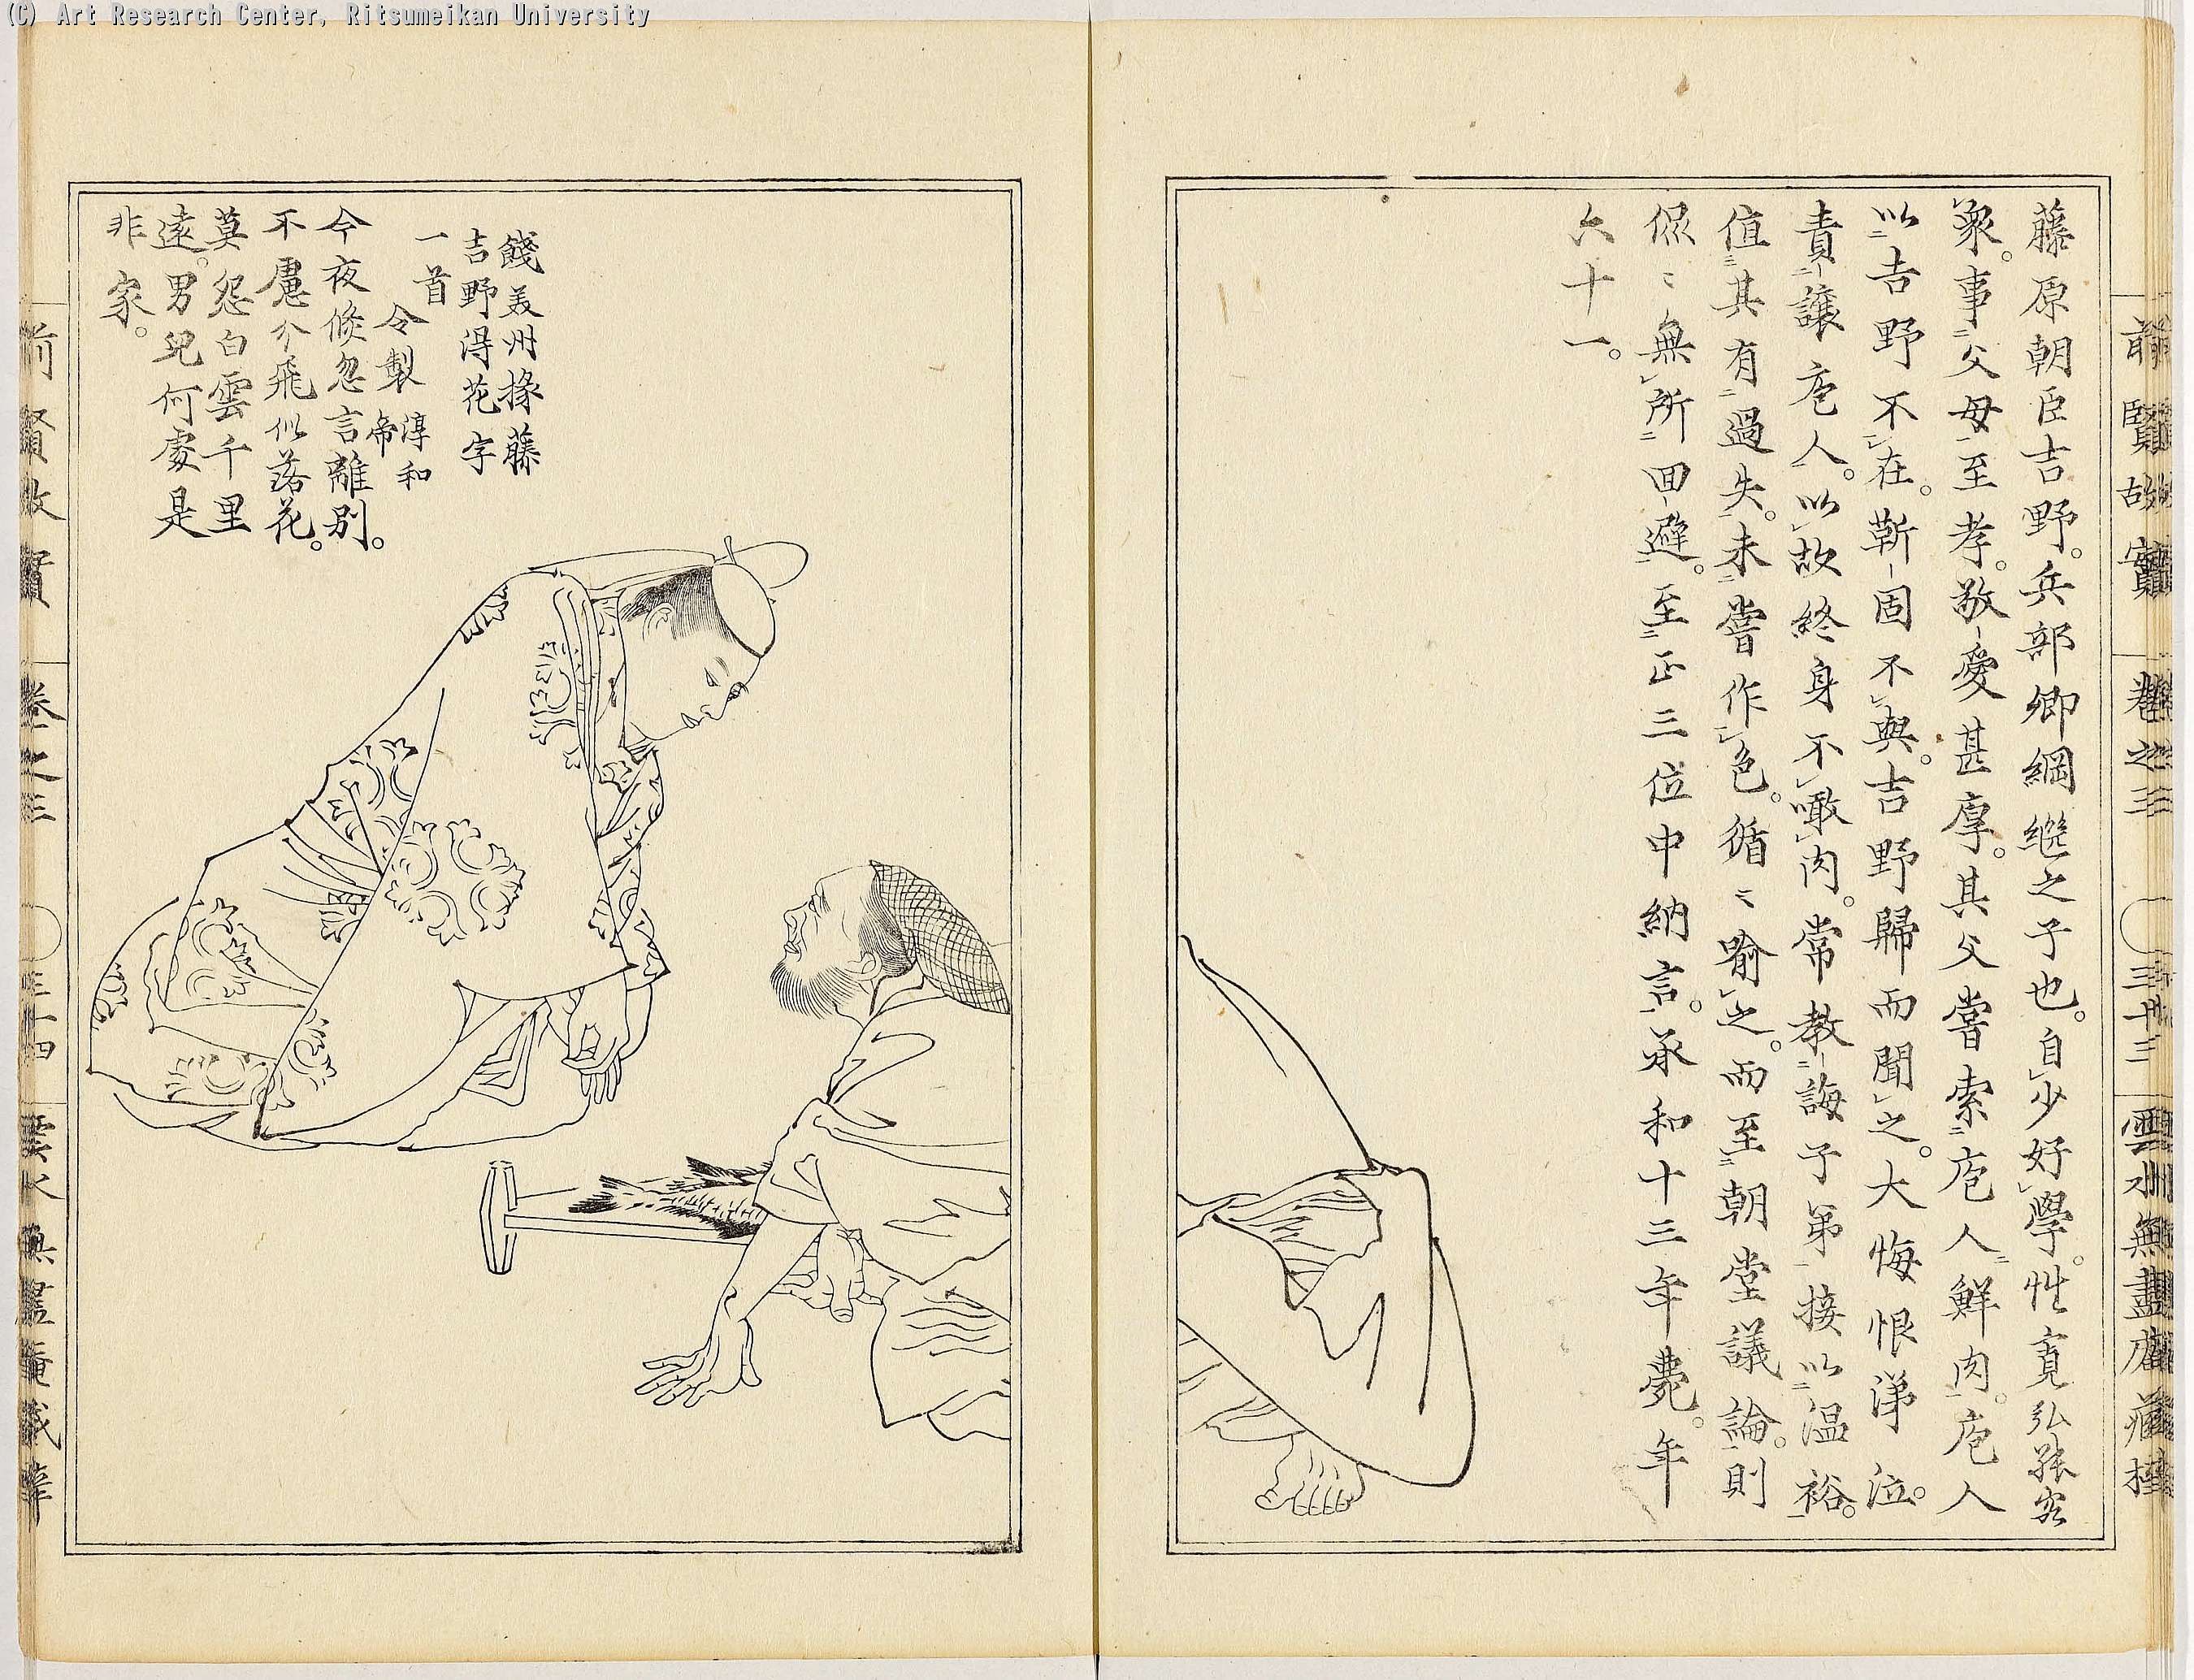 (C) Art Research Center, Ritsumeikan University
前賢故實 卷之三 三十三 雲水無盡庵藏梓
藤原朝臣吉野。兵部卿綱継之子也。自少好學。性寛弘能容
衆。事父母至孝。敬愛甚厚。其父嘗索庖人鮮肉。庖人
以吉野不在。靳固不與。吉野歸而聞之。大悔恨涕泣。
責讓庖人。以故終身不噉肉。常教誨子弟接以温裕。
值其有過失。未嘗作色。循〻喻之。而至朝堂議論。則
侃〻無所回避。至正三位中納言。承和十三年薨。年
六十一。
餞美州掾藤
吉野得花字
一首
令製 淳和帝
今夜倏忽言離別。
不慮分飛似落花。
莫怨白雲千里
遠。男兒何處是
非家。
前賢故實 卷之三 三十四 雲水無盡庵藏梓